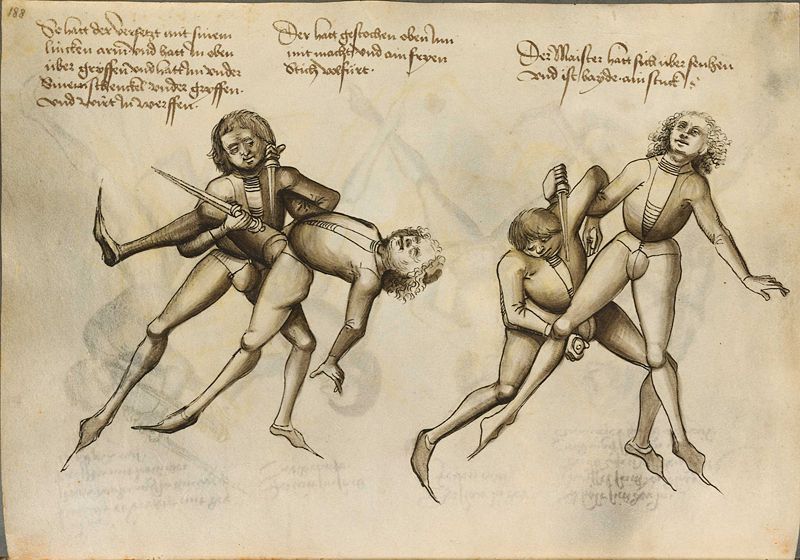 188
Se hatt der versetzt mit sinem
lincken arm vnd hatt in oben
über gryffen vnd hatt in vnder
Sinem schenckel vnder gryffen
vnd würt in werffen.
Der hatt gestochen oben inn
mit macht vnd ain fryen
Stich volfürt.
Der Maister hatt sich über senhen
vnd ist bayde ain stuck